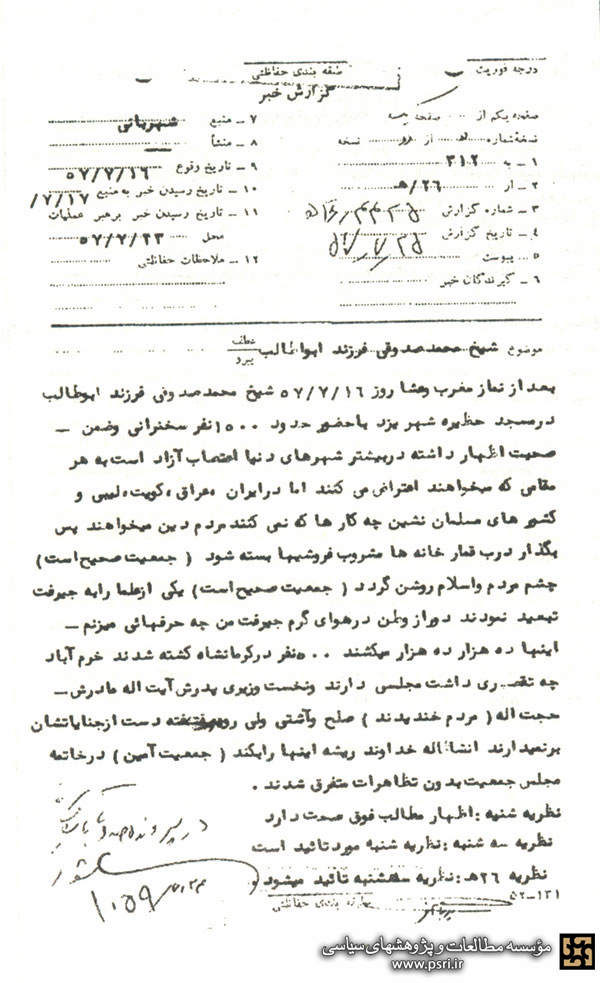 درجه فوریت
طبقه بندی حفاظتی
گزارش خبر
صفحه یکم از صفحه
نسخهٔ شماره از نسخه
۱ ــ به ۳۱۲
۲ ــ از ۲۶/هـ
۳ ــ شماره گزارش
۴ ــ تاریخ گزارش
۵ ــ پیوست
۶ ــ گیرندگان خبر
۷ ــ منبع شهربانی
۸ ــ منشأ
۹ ــ تاریخ وقوع ۵۷/۷/۱۶
۱۰ ــ تاریخ رسیدن خبر به منبع ۷/۱۷/
۱۱ ــ تاریخ رسیدن خبر برهبر عملیات
محل ۵۷/۷/۲۳
۱۲ ــ ملاحظات حفاظتی
موضوع شیخ محمد صدوقی فرزند ابوطالب عطف پیرو
بعد از نماز مغرب وعشا روز ۵۷/۷/۱۶ شیخ محمد صدوقی فرزند ابوطالب
درمسجد حظیره شهر یزد باحضور حدود ۱۵۰۰ نفر سخنرانی وضمن ــ
صحبت اظهار داشته دربیشتر شهرهای دنیا اعتصاب آزاد است به هر
مقامی که میخواهند اعتراض می کنند اما درایران ،عراق ،کویت ،لیبی و
کشور های مسلمان نشین چه کار ها که نمی کنند مردم دین میخواهند پس
بگذار درب قمار خانه ها مشروب فروشیها بسته شود ( جمعیت صحیح است )
چشم مردم واسلام روشن گردد ( جمعیت صحیح است ) یکی ازعلما رابه جیرفت
تبعید نمودند دوراز وطن درهوای گرم جیرفت من چه حرفهائی میزنم ــ
اینها ده هزار ده هزار میکشند ۵۰۰ نفر درکرمانشاه کشته شدند خرم آباد
چه تقصیری داشت مجلسی دارند ونخست وزیری پدرش آیت اله مادرش ــ
حجت اله ( مردم خندیدند ) صلح وآشتی ولی دست ازجنایاتشان
برنمیدارند انشااله خداوند ریشه اینها رابکند ( جمعیت آمین ) درخاتمه
مجلس جمعیت بدون تظاهرات متفرق شدند .
نظریه شنبه : اظهار مطالب فوق صحت دارد
نظریه سه شنبه : نظریه شنبه مورد تائید است
نظریه ۲۶ هـ : نظریه سه شنبه تائید میشود
در پرونده
۱۰۵۹
۵۲-۱۳۱
طبقه بندی حفاظتی
مؤسسه مطالعات و پژوهشهای سیاسی
www.psri.ir